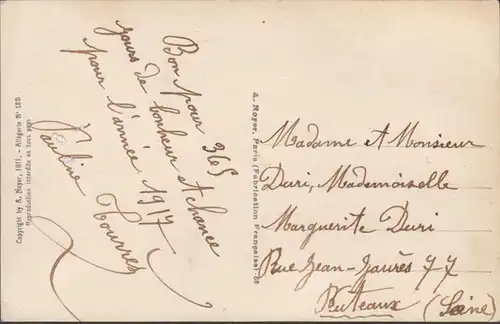 Bon pour 365
jours de bonheur et chance
pour l'année 1917
Pauline Tourres
Copyright by A. Noyer, 1911. - Allégorie N° 123
Reproduction interdite en tous pays
A. Noyer, Paris (Fabrication Française).
Madame et Monsieur
Duri, Mademoiselle
Marguerite Duri
Rue Jean-Jaurès 77
Puteaux (Seine)